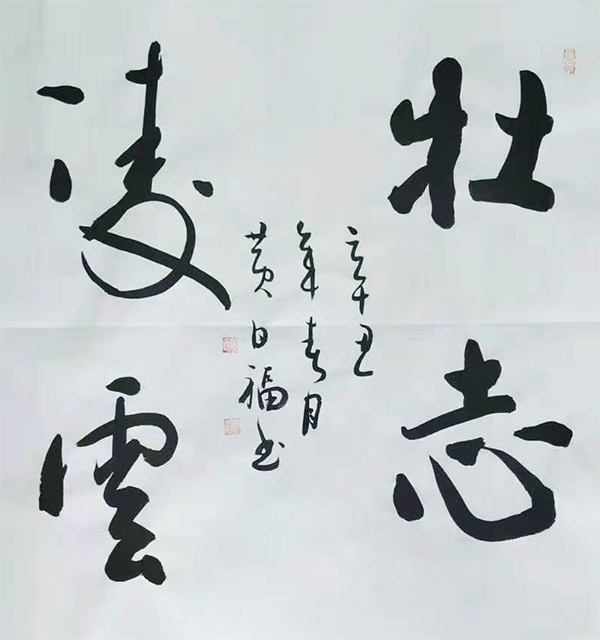 壮志
凌雲
辛丑
年春月
黄日福书